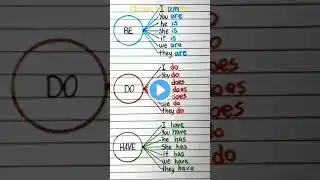 BE
I am
You are
he is
She is
it is
we are
they are
DO
I do
You do
does
does
does
we do
they do
HAVE
I have
You have
he has
She has
it has
we have
they have
DO
does
does
do
do